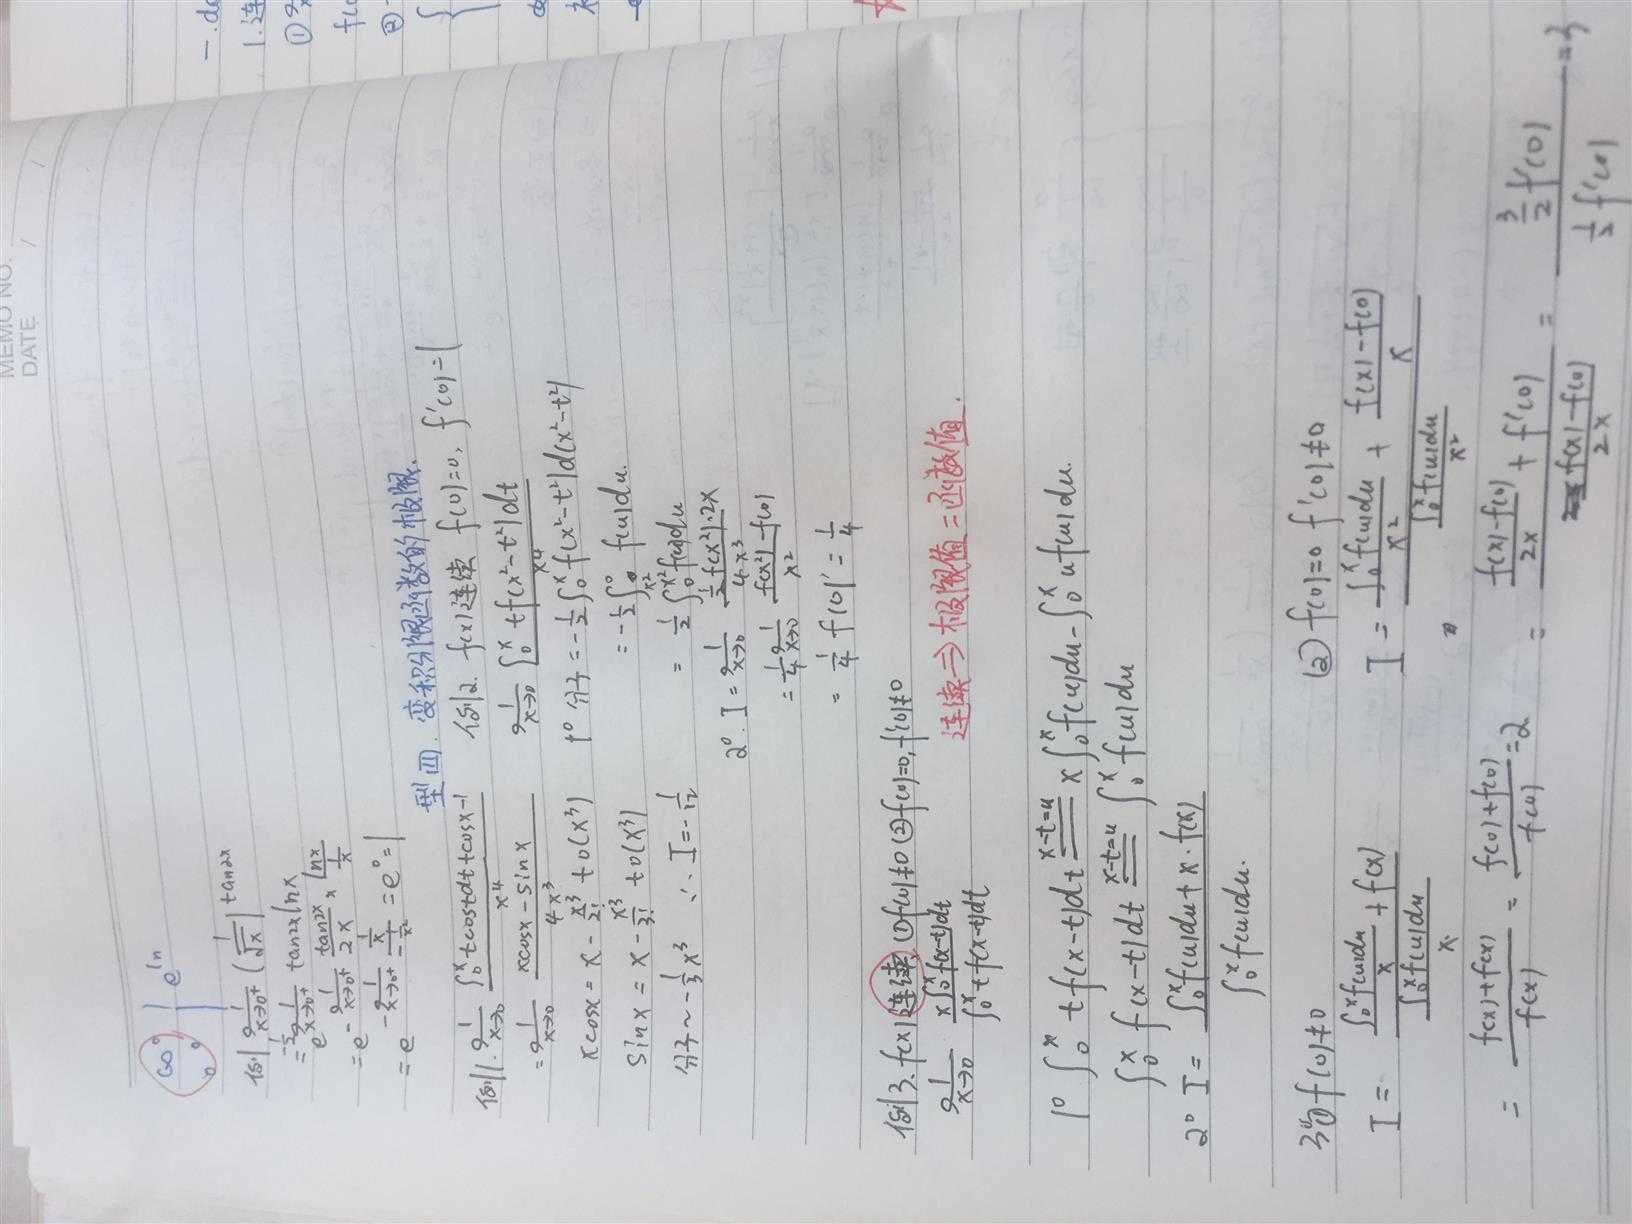 MEMO NO.
DATE / /
∞⁰ 0⁰ } e^ln
例 lim_{x→0+} (1/√x)^{tan2x}
= e^{-1/2 lim_{x→0+} tan2x lnx}
= e^{-lim_{x→0+} tan2x/2x × lnx/(1/x)}
= e^{-lim_{x→0+} (1/x)/(-1/x²)} = e⁰ = 1
型四. 变积分限函数的极限.
例1. lim_{x→0} (∫₀ˣ tcostdt+cosx-1)/x⁴
= lim_{x→0} (xcosx-sinx)/4x³
xcosx = x - x³/2! + o(x³)
sinx = x - x³/3! + o(x³)
分子 ~ -1/3 x³ ∴ I = -1/12
例2. f(x)连续 f(0)=0, f'(0)=1
lim_{x→0} ∫₀ˣ tf(x²-t²)dt / x⁴
1° 分子 = -1/2 ∫₀ˣ f(x²-t²)d(x²-t²)
= -1/2 ∫_{x²}⁰ f(u)du.
= 1/2 ∫₀^{x²} f(u)du
2°. I = lim_{x→0} (1/2 f(x²)·2x)/4x³
= 1/4 lim_{x→0} (f(x²)-f(0))/x²
= 1/4 f(0)' = 1/4
例3. f(x)连续, ①f(0)≠0 ②f(0)=0, f'(0)≠0
lim_{x→0} x∫₀ˣ f(x-t)dt / ∫₀ˣ t f(x-t)dt
连续⇒极限值=函数值.
1° ∫₀ˣ t f(x-t)dt x-t=u x∫₀ˣ f(u)du - ∫₀ˣ uf(u)du.
∫₀ˣ f(x-t)dt x-t=u ∫₀ˣ f(u)du
2° I = (∫₀ˣ f(u)du + x·f(x)) / ∫₀ˣ f(u)du.
3° ① f(0)≠0
I = (∫₀ˣ f(u)du/x + f(x)) / (∫₀ˣ f(u)du/x)
= (f(x)+f(x))/f(x) = (f(0)+f(0))/f(0) = 2
② f(0)=0 f'(0)≠0
I = (∫₀ˣ f(u)du/x² + (f(x)-f(0))/x) / (∫₀ˣ f(u)du/x²)
= ((f(x)-f(0))/2x + f'(0)) / ((f(x)-f(0))/2x) = (3/2 f'(0)) / (1/2 f'(0)) = 3